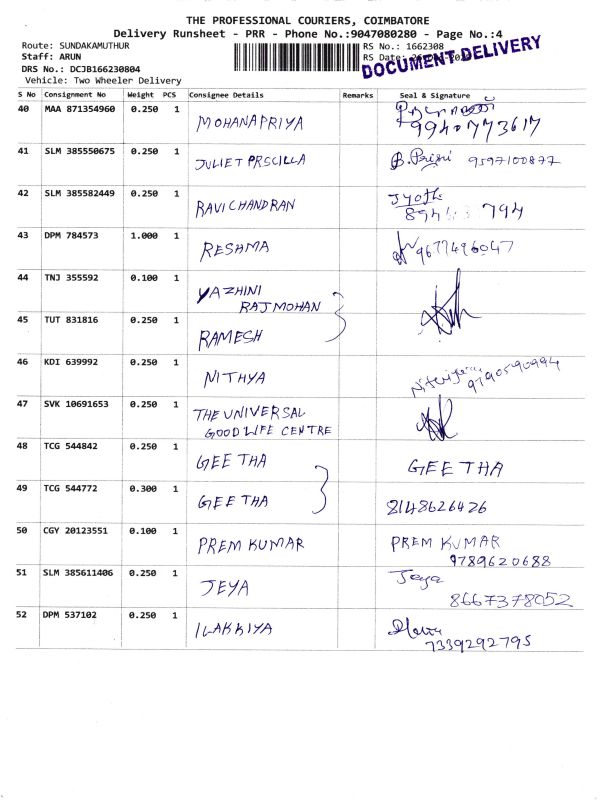 THE PROFESSIONAL COURIERS, COIMBATORE
Delivery Runsheet - PRR - Phone No.:9047080280 - Page No.:4
Route: SUNDAKAMUTHUR
RS No.: 1662308
Staff: ARUN
RS Date:
DOCUMENT DELIVERY
DRS No.: DCJB166230804
Vehicle: Two Wheeler Delivery
S No Consignment No Weight PCS Consignee Details Remarks Seal & Signature
40 MAA 871354960 0.250 1 MOHANAPRIYA
9940773617
41 SLM 385550675 0.250 1 JULIET PRSCILLA B.Prisi 9597100877
42 SLM 385582449 0.250 1 RAVICHANDRAN Jyothi
794
43 DPM 784573 1.000 1 RESHMA 9677496047
44 TNJ 355592 0.100 1 YAZHINI
RAJMOHAN
45 TUT 831816 0.250 1 RAMESH
46 KDI 639992 0.250 1 NITHYA 9790590994
47 SVK 10691653 0.250 1 THE UNIVERSAL
GOOD LIFE CENTRE
48 TCG 544842 0.250 1 GEETHA GEETHA
49 TCG 544772 0.300 1 GEETHA 8148626426
50 CGY 20123551 0.100 1 PREM KUMAR PREM KUMAR
9789620688
51 SLM 385611406 0.250 1 JEYA Jeya
8667378052
52 DPM 537102 0.250 1 ILAKKIYA
7339292795